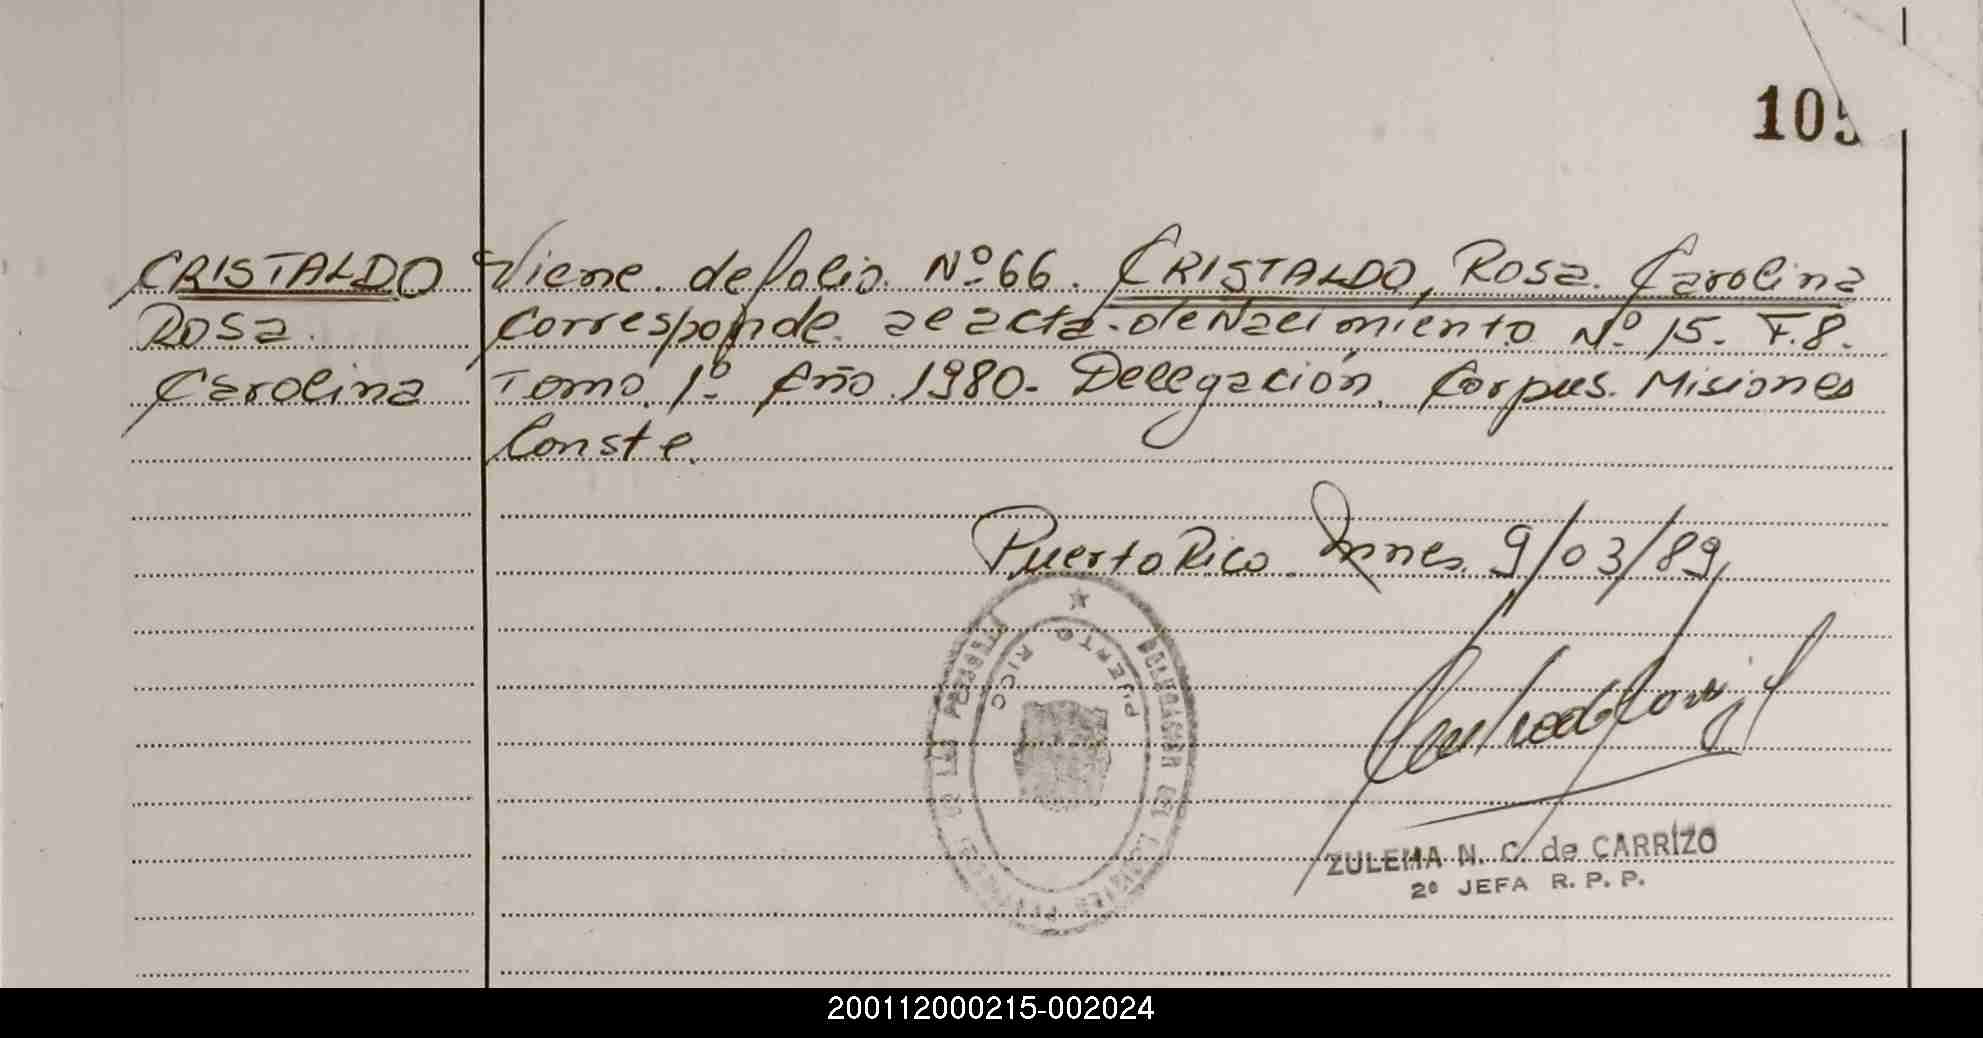 105
CRISTALDO
Rosa
Carolina
Viene de folio Nº 66. CRISTALDO, Rosa Carolina
Corresponde ae acta de Nacimiento Nº 15. F. 8.
Tomo 1º Año 1980- Delegación Corpus. Misiones
Conste.
Puerto Rico Mnes. 9/03/89
PUERTO RICO
DE LAS PERSONAS
ZULEMA N. C. de CARRIZO
2º JEFA R. P. P.
200112000215-002024